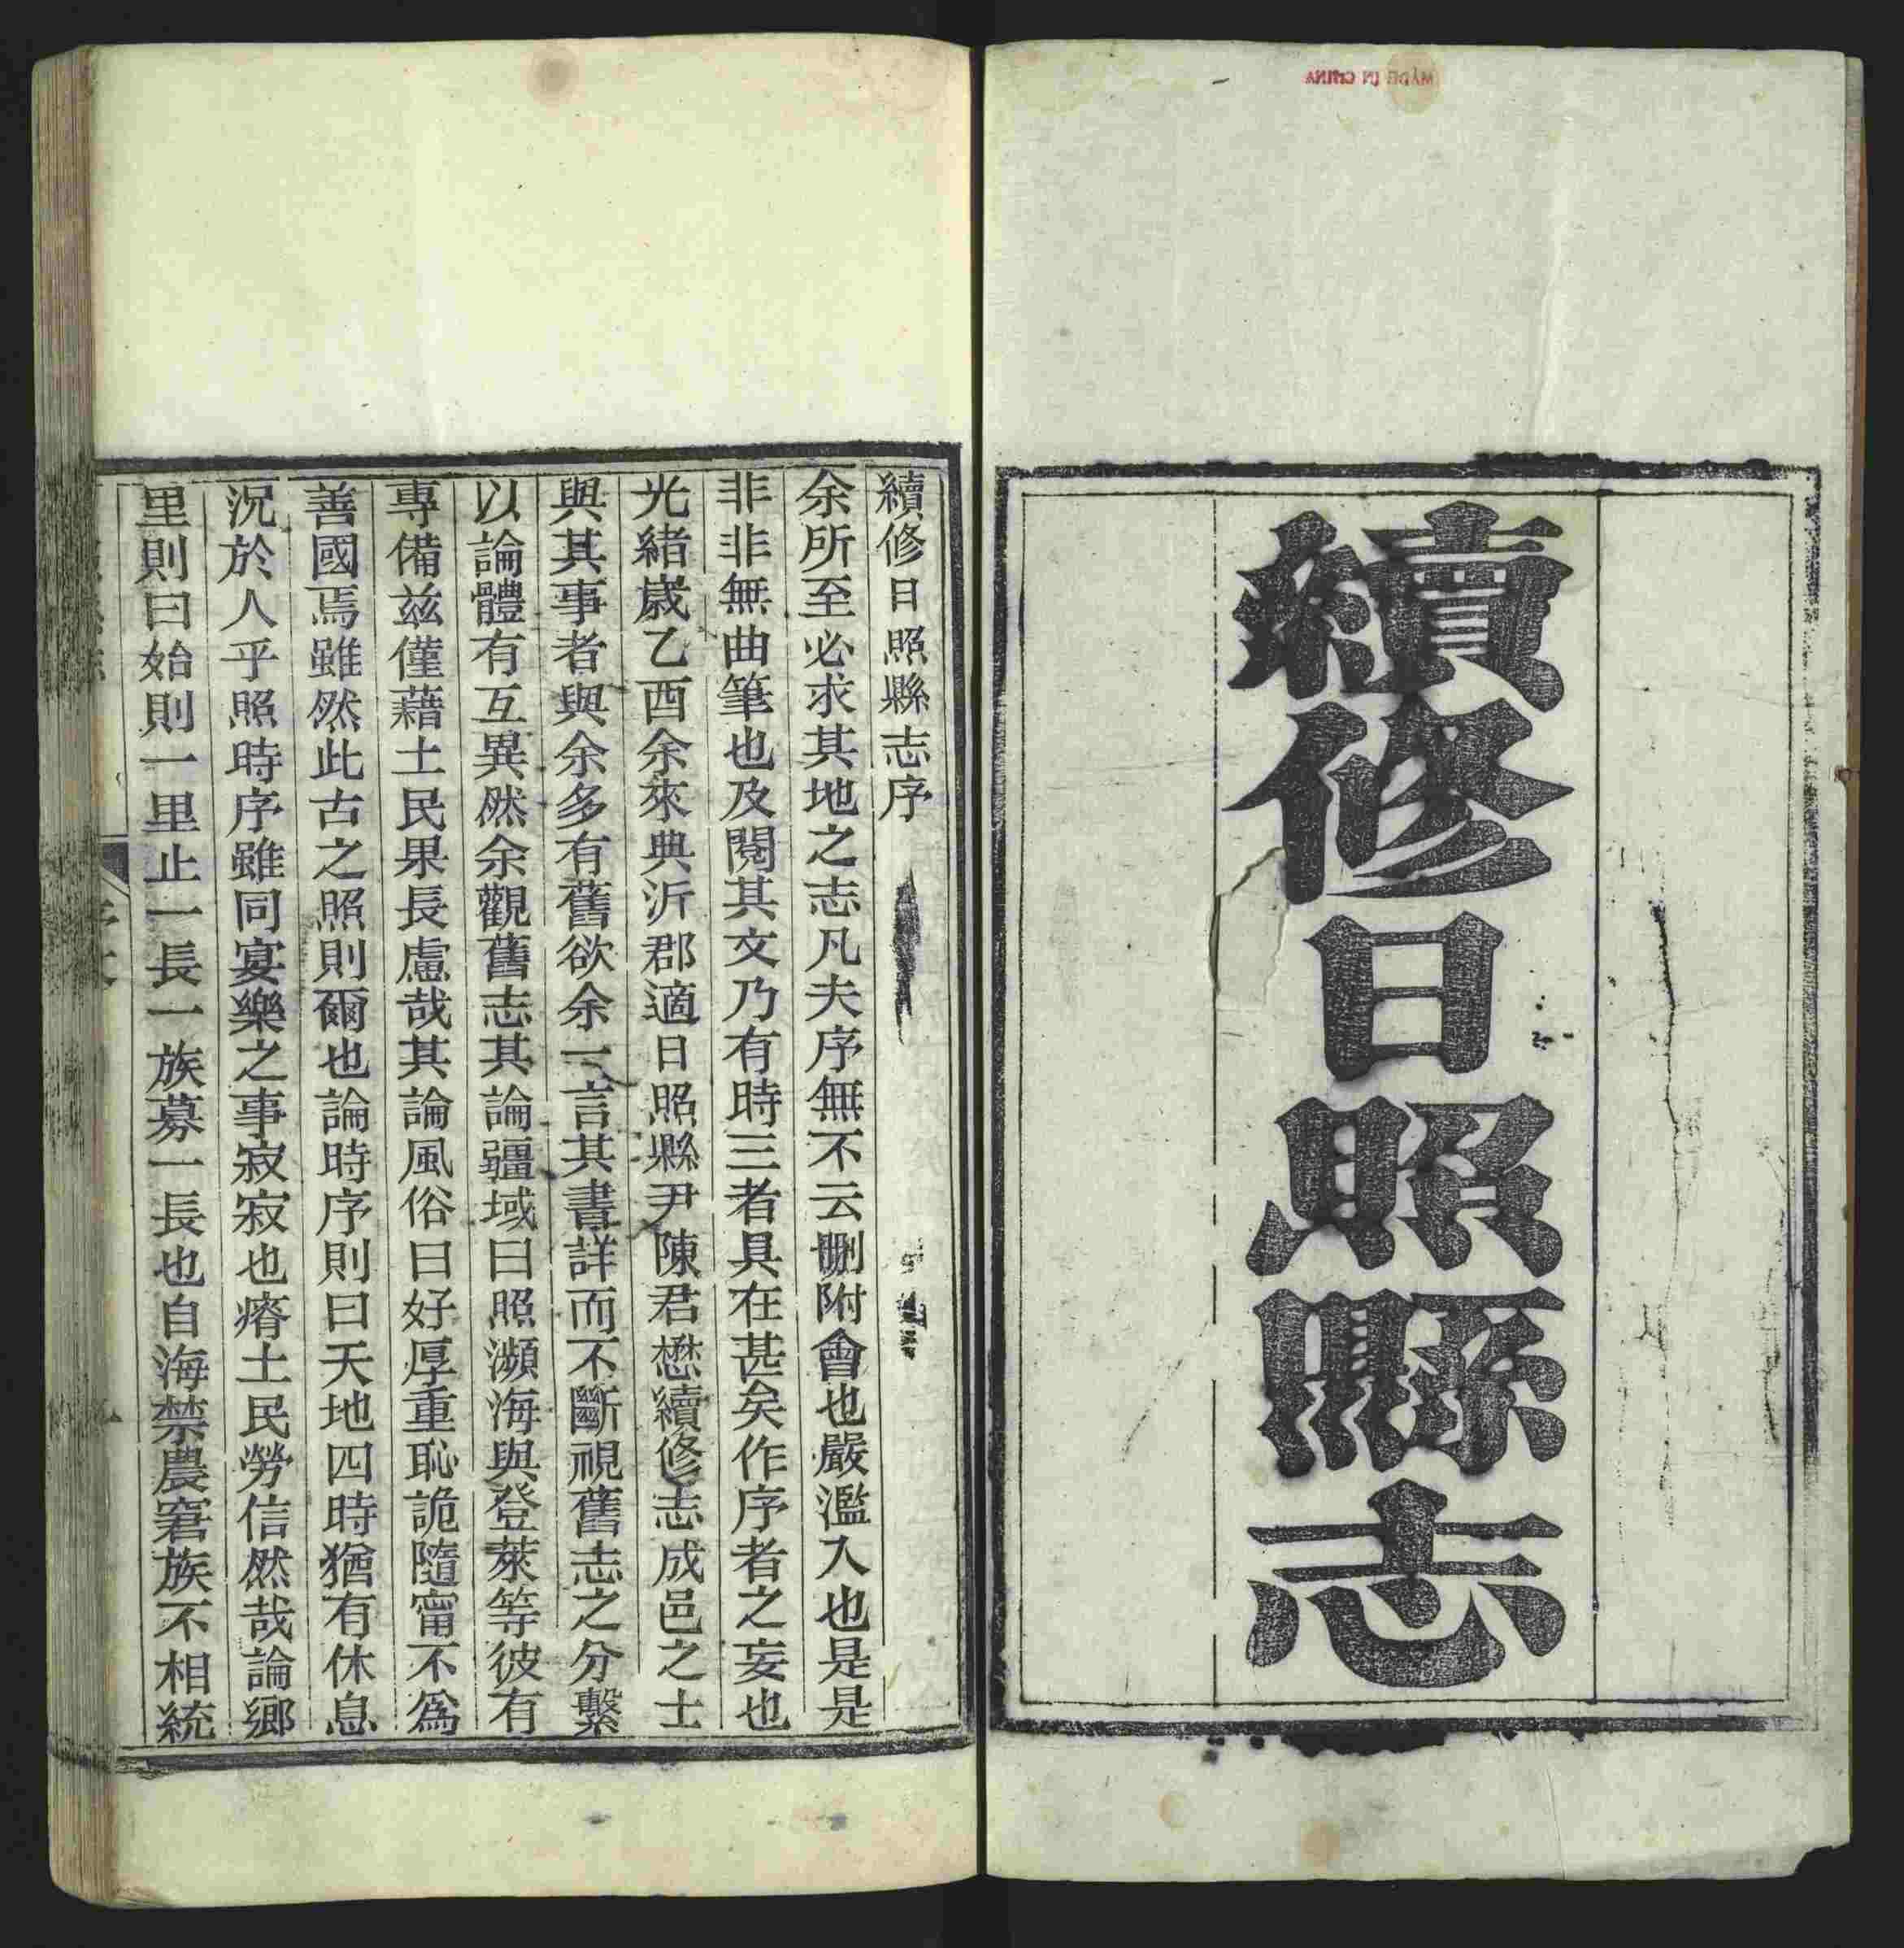 MADE IN CHINA
續修日照縣志
續修日照縣志序
余所至必求其地之志凡夫序無不云刪附會也嚴濫入也是是
非非無曲筆也及閱其文乃有時三者具在甚矣作序者之妄也
光緒歲乙酉余來典沂郡適日照縣尹陳君懋續修志成邑之士
與其事者與余多有舊欲余一言其書詳而不斷視舊志之分繫
以論體有互異然余觀舊志其論疆域曰照瀕海與登萊等彼有
專備兹僅藉土民果長慮哉其論風俗曰好厚重恥詭隨甯不為
善國焉雖然此古之照則爾也論時序則曰天地四時猶有休息
況於人乎照時序雖同宴樂之事寂寂也瘠土民勞信然哉論鄉
里則曰始則一里止一長一族募一長也自海禁農窘族不相統